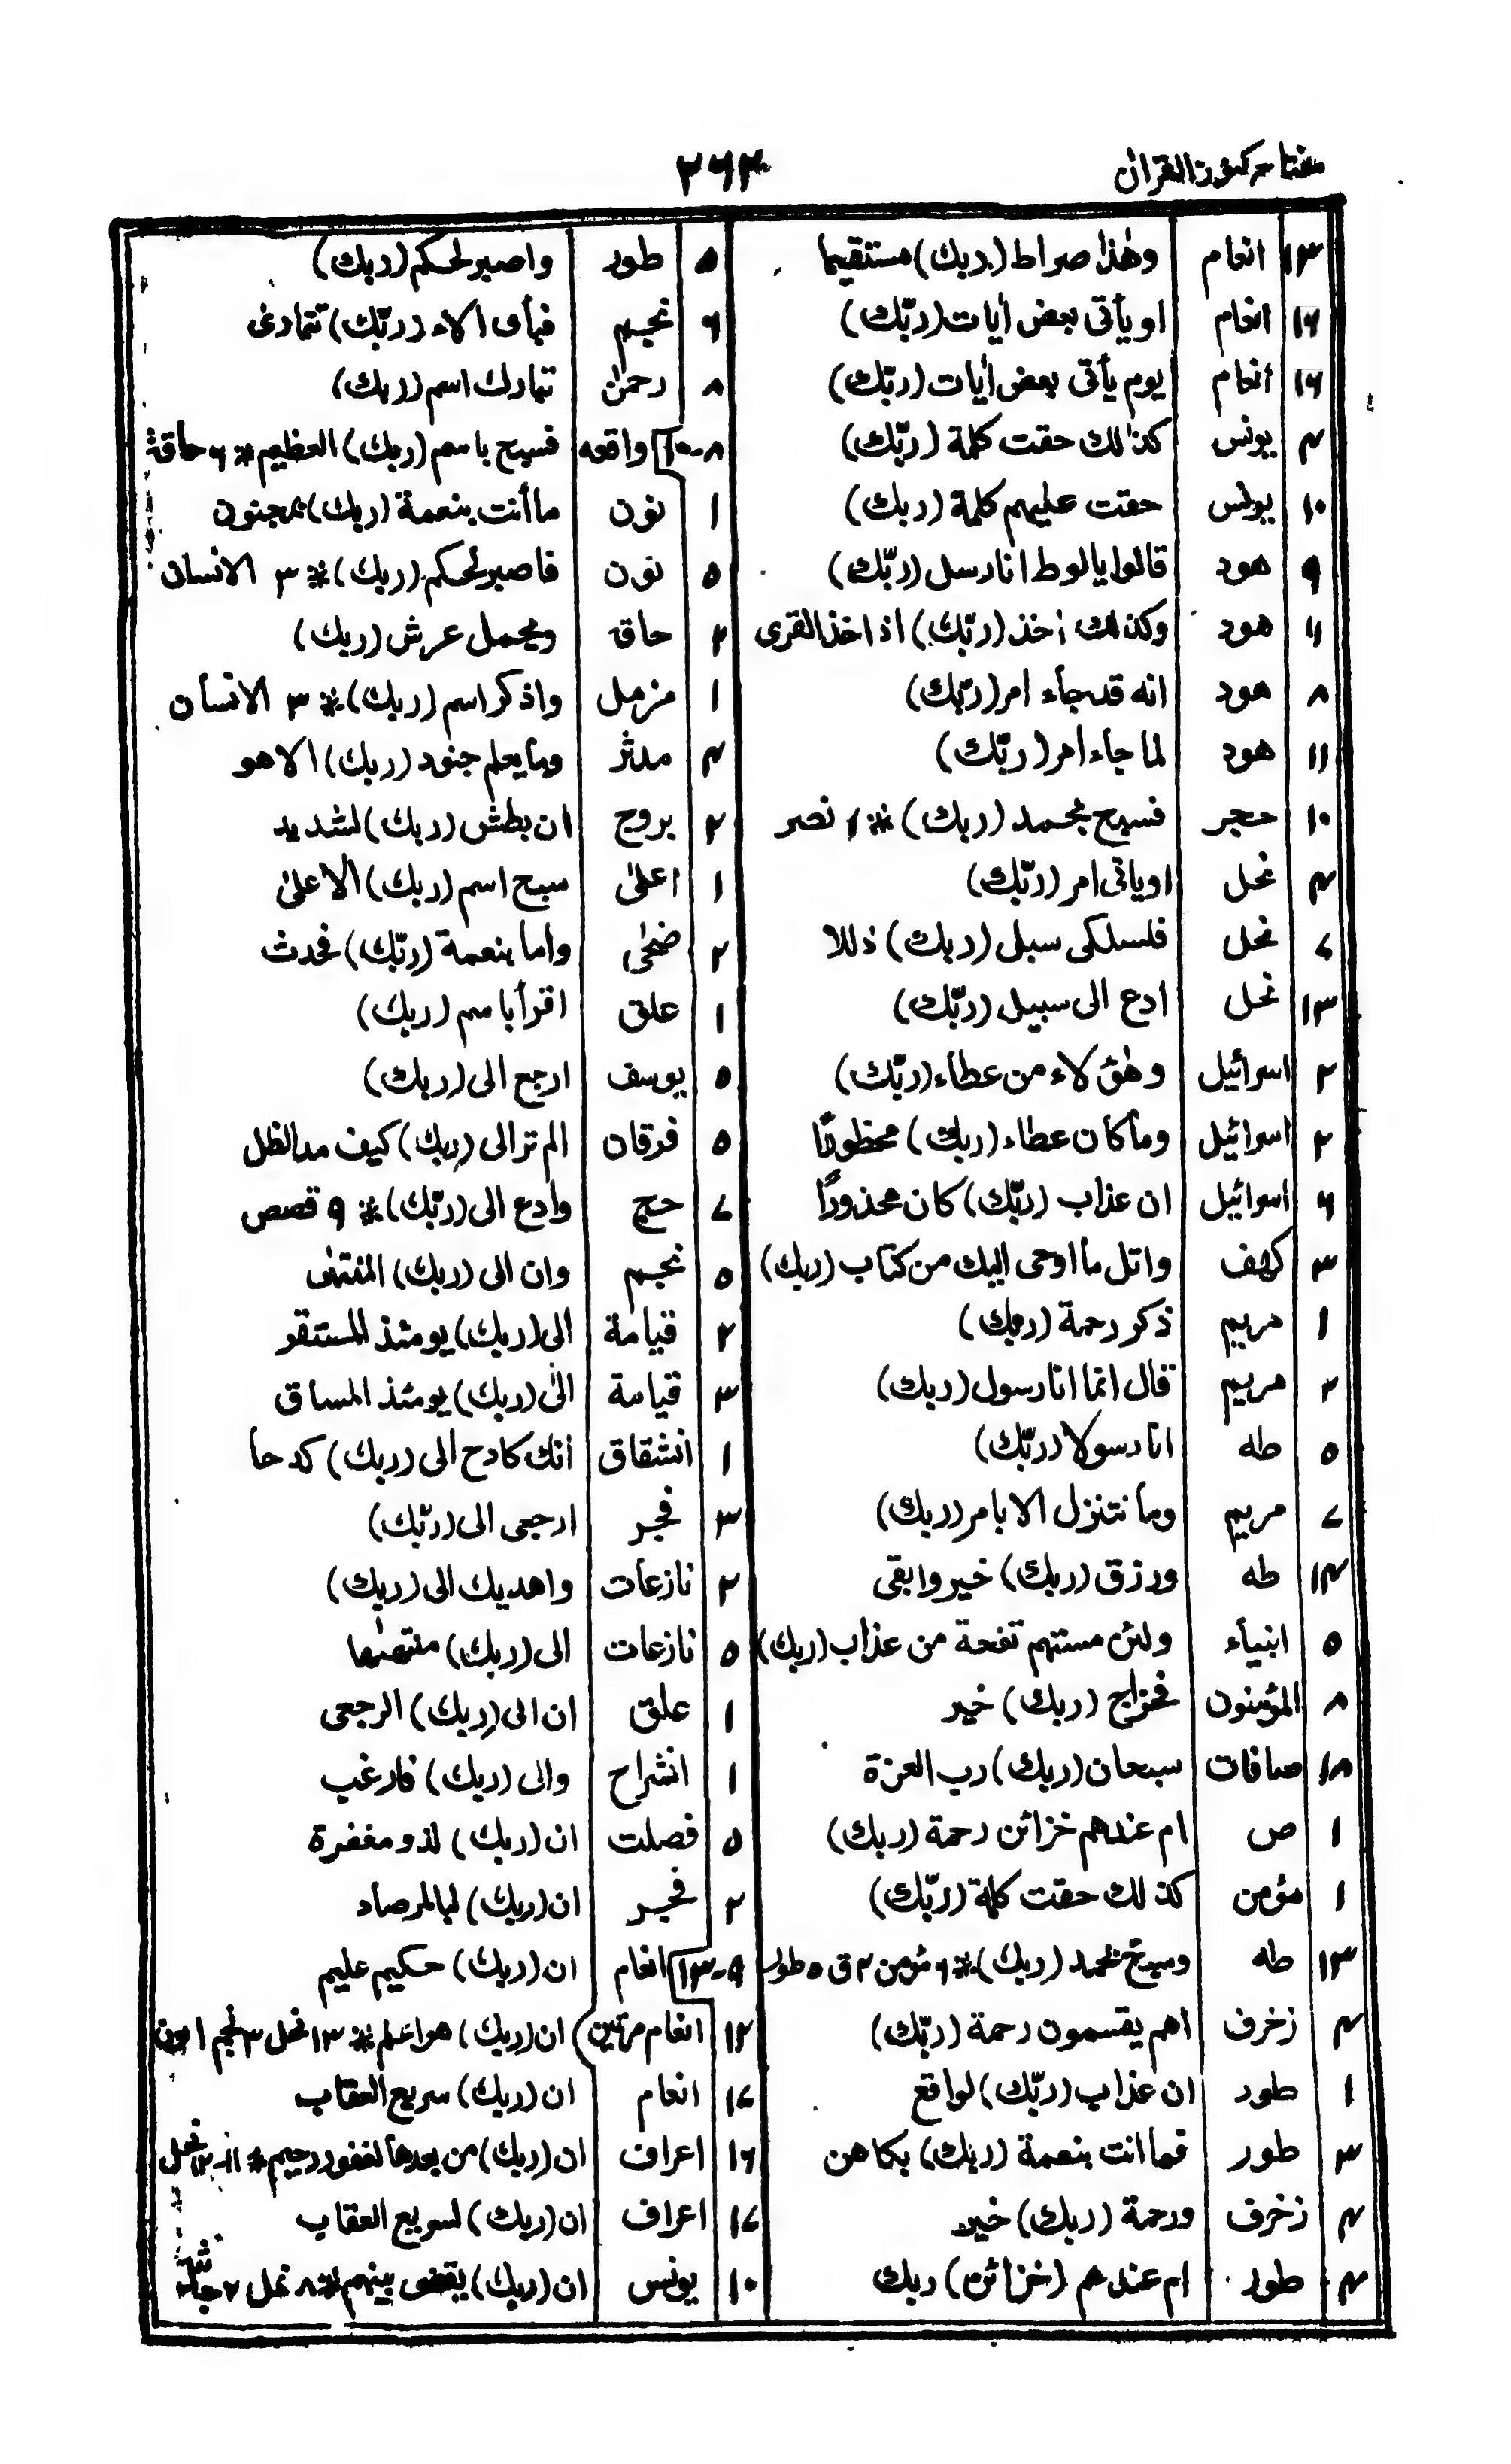 مفتاح كنوز القران
۲۶۲
۱۳ انعام وهٰذا صراط (ربك) مستقيما
۱۶ انعام او يأتى بعض اٰيات (ربّك)
۱۶ انعام يوم يأتى بعض اٰيات (ربّك)
۴ يونس كذٰلك حقت كلمة (ربّك)
۱۰ يونس حقت عليهم كلمة (ربك)
۹ هود قالوا يا لوط انا رسل (ربّك)
۱۱ هود وكذلك اخذ (ربّك) اذا اخذ القرى
۸ هود انه قد جاء امر (ربّك)
۱۱ هود لما جاء امر (ربّك)
۱۰ حجر فسبح بحمد (ربك) * ۱ نصر
۴ نحل او ياتى امر (ربّك)
۷ نحل فاسلكى سبل (ربك) ذللا
۱۳ نحل ادع الى سبيل (ربّك)
۲ اسرائيل وهٰؤلاء من عطاء (ربّك)
۲ اسرائيل وما كان عطاء (ربك) محظورًا
۶ اسرائيل ان عذاب (ربّك) كان محذورًا
۳ كهف واتل ما اوحى اليك من كتاب (ربك)
۱ مريم ذكر رحمة (ربك)
۲ مريم قال انما انا رسول (ربك)
۵ طه انا رسولا (ربّك)
۷ مريم وما نتنزل الا بامر (ربك)
۱۴ طه ورزق (ربك) خير وابقى
۵ انبياء ولئن مستهم نفحة من عذاب (ربك)
۸ المؤمنون فخراج (ربك) خير
۱۸ صافات سبحان (ربك) رب العزة
۱ ص ام عندهم خزائن رحمة (ربك)
۱ مؤمن كذلك حقت كلمة (ربّك)
۱۳ طه وسبح بحمد (ربك) * ۶ مؤمن ۲ ق ۵ طور
۴ زخرف اهم يقسمون رحمة (ربّك)
۱ طور ان عذاب (ربّك) لواقع
۳ طور فما انت بنعمة (ربك) بكاهن
۴ زخرف ورحمة (ربك) خير
۴ طور ام عندهم (خزائن) ربك
۵ طور واصبر لحكم (ربك)
۶ نجم فبأى الاء (ربّك) تتمارىٰ
۸ رحمٰن تبارك اسم (ربك)
۸-۱۰ واقعه فسبح باسم (ربك) العظيم * ۶ حاقة
۱ نون ما أنت بنعمة (ربك) بمجنون
۵ نون فاصبر لحكم (ربك) * ۳ الانسان
۲ حاق ويحمل عرش (ربك)
۱ مزمل واذكر اسم (ربك) * ۳ الانسان
۴ مدثر وما يعلم جنود (ربك) الا هو
۲ بروج ان بطش (ربك) لشديد
۱ اعلىٰ سبح اسم (ربك) الاعلىٰ
۲ ضحىٰ واما بنعمة (ربّك) فحدث
۱ علق اقرأ باسم (ربك)
۵ يوسف ارجع الى (ربك)
۵ فرقان الم تر الى (ربك) كيف مد الظل
۷ حج وادع الى (ربّك) * ۹ قصص
۵ نجم وان الى (ربك) المنتهىٰ
۲ قيامة الى (ربك) يومئذ المستقر
۳ قيامة الىٰ (ربك) يومئذ المساق
۱ انشقاق انك كادح الى (ربك) كدحا
۳ فجر ارجعى الى (ربّك)
۲ نازعات واهديك الى (ربك)
۵ نازعات الى (ربك) منتهٰىها
۱ علق ان الى (ربك) الرجعى
۱ انشراح والى (ربك) فارغب
۵ فصلت ان (ربك) لذو مغفرة
۲ فجر ان (ربك) لبالمرصاد
۹-۱۳ انعام ان (ربك) حكيم عليم
۱۲ انعام مرتين ان (ربك) هو اعلم * ۱۳ نحل ۳ نجم ۱ نون
۱۷ انعام ان (ربك) سريع العقاب
۱۶ اعراف ان (ربك) من بعدها لغفور رحيم * ۱۱-۱۲ نحل
۱۷ اعراف ان (ربك) لسريع العقاب
۱۰ يونس ان (ربك) يقضى بينهم * ۸ نمل ۲ جاثيه